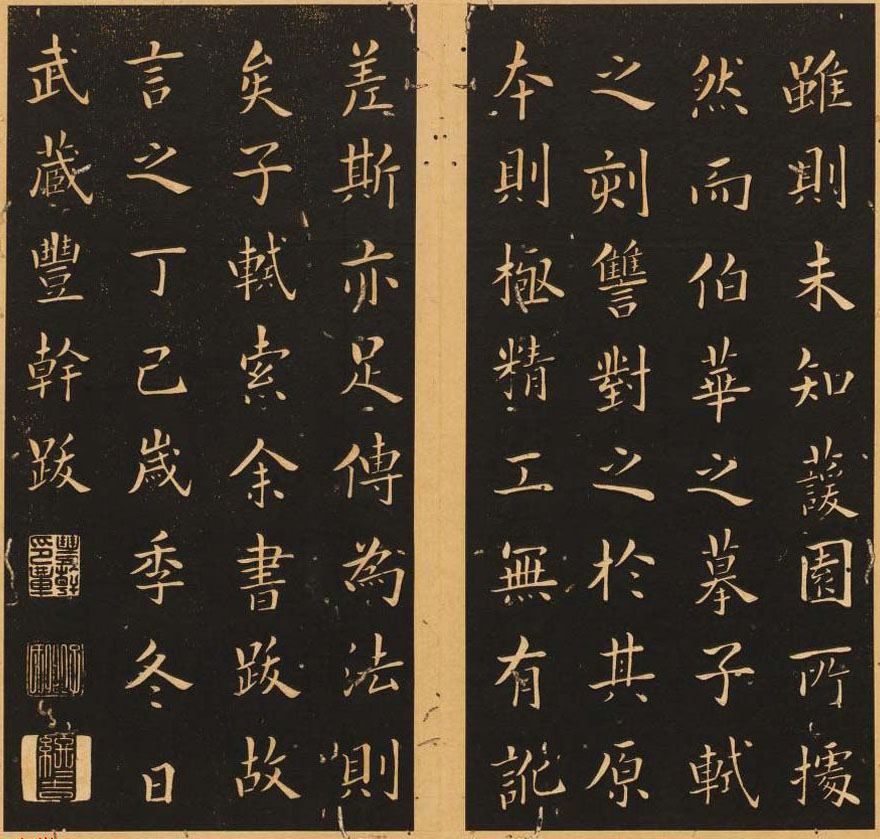 雖則未知蘐園所據
然而伯華之摹子軾
之刻讐對之於其原
本則極精工無有訛
差斯亦足傳為法則
矣子軾索余書跋故
言之丁己歲季冬日
武蔵豐幹跋